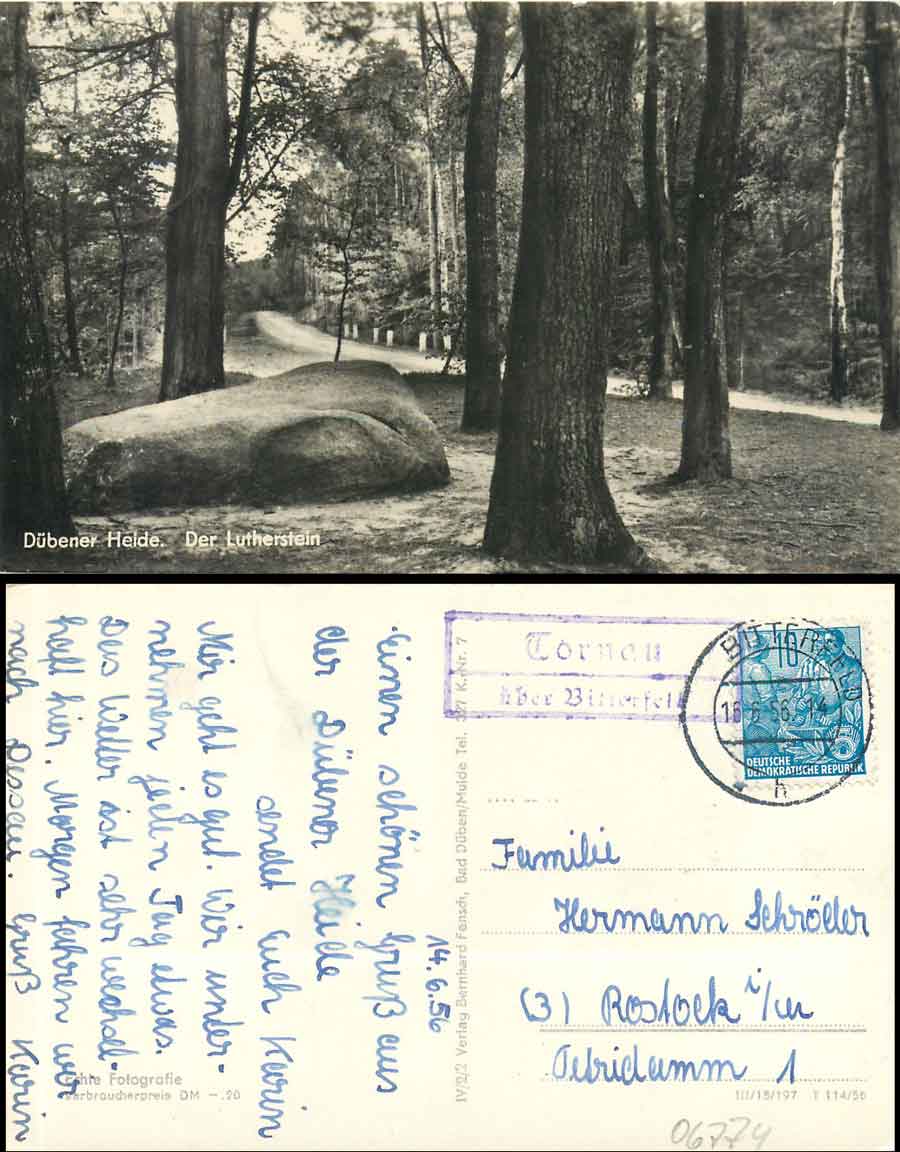 Dübener Heide. Der Lutherstein
14.6.56
Einen schönen Gruß aus
der Dübener Heide
sendet euch Karin
Mir geht es gut. Wir unter-
nehmen jeden Tag etwas.
Das Wetter ist sehr wechsel-
haft hier. Morgen fahren wir
nach Dessau. Gruß Karin
Echte Fotografie
Verbraucherpreis DM -.20
IV/2/2 Verlag Bernhard Fensch, Bad Düben/Mulde Tel. 327 K.-Nr. 7
Tornau
über Bitterfeld
BITTERFELD
16.6.56. 14
h
16
DEUTSCHE
DEMOKRATISCHE REPUBLIK
Familie
Hermann Schröder
(3) Rostock i/M
Petridamm 1
III/18/197 T 114/56
06774